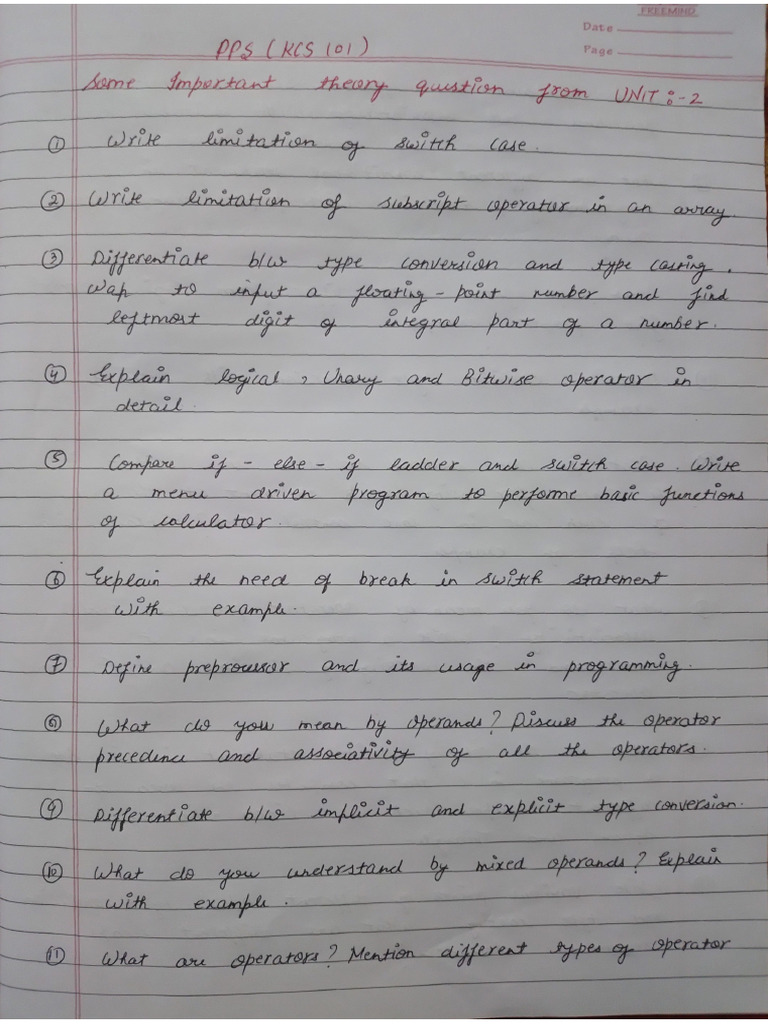 FREEMIND
Date
Page
PPS (KCS 101)
Some Important theory question from UNIT:-2
① Write limitation of switch case.
② Write limitation of subscript operator in an array.
③ Differentiate b/w type conversion and type casting.
Wap to input a floating-point number and find
leftmost digit of integral part of a number.
④ Explain logical, Unary and Bitwise operator in
detail.
⑤ Compare if-else-if ladder and switch case. Write
a menu driven program to performe basic functions
of calculator.
⑥ Explain the need of break in switch statement
with example.
⑦ Define preprocessor and its usage in programming.
⑧ What do you mean by operands? Discuss the operator
precedence and associativity of all the operators.
⑨ Differentiate b/w implicit and explicit type conversion.
⑩ What do you understand by mixed operands? Explain
with example.
⑪ What are operators? Mention different types of operator